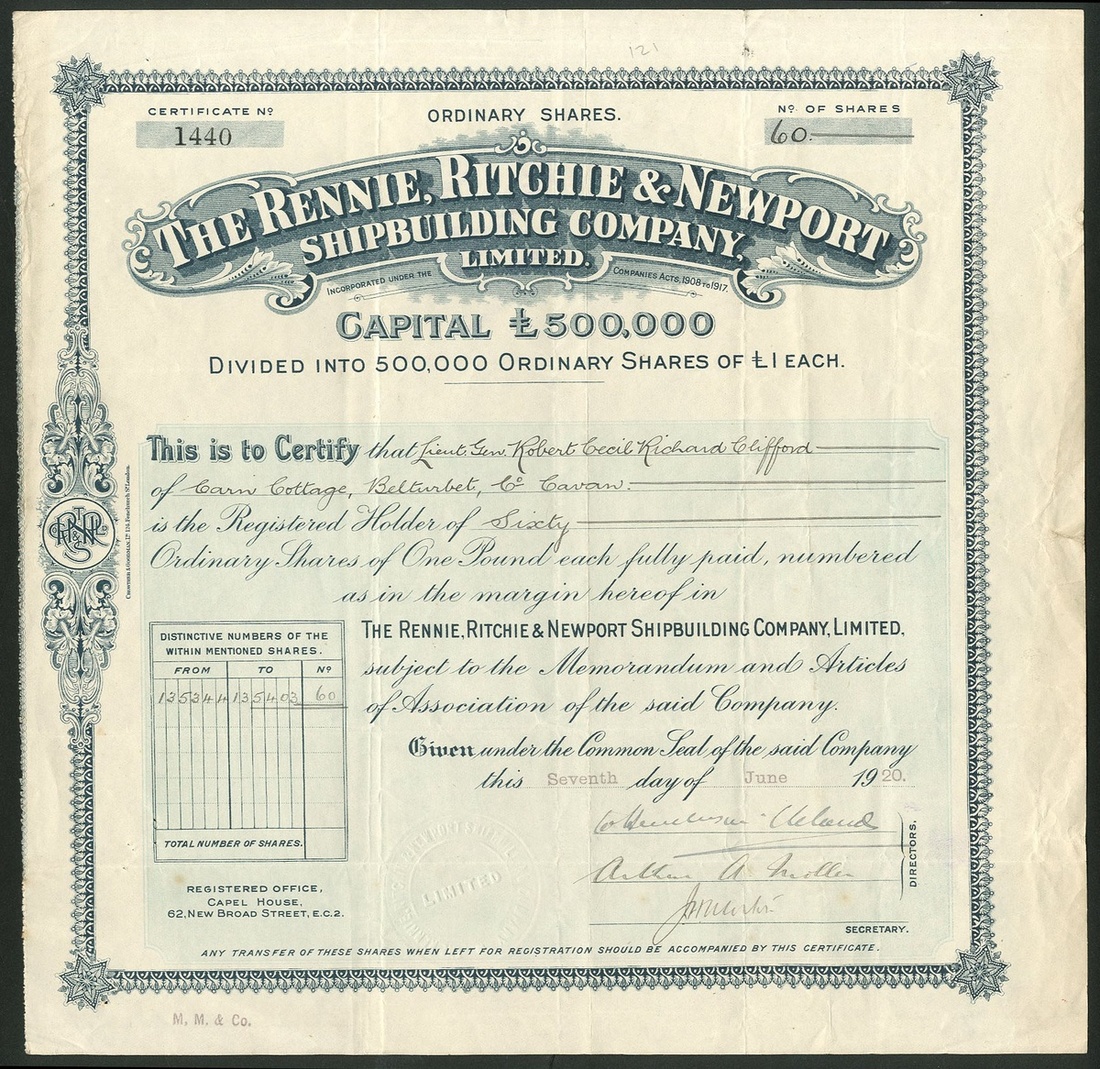 121
CERTIFICATE Nº
1440
ORDINARY SHARES.
Nº OF SHARES
60.
THE RENNIE, RITCHIE & NEWPORT
SHIPBUILDING COMPANY,
LIMITED.
INCORPORATED UNDER THE COMPANIES ACTS, 1908 TO 1917.
CAPITAL £500,000
DIVIDED INTO 500,000 ORDINARY SHARES OF £1 EACH.
This is to Certify that Lieut. Gen. Robert Cecil Richard Clifford
of Carn Cottage, Belturbet, Co Cavan.
is the Registered Holder of Sixty
Ordinary Shares of One Pound each fully paid, numbered
as in the margin hereof in
THE RENNIE, RITCHIE & NEWPORT SHIPBUILDING COMPANY, LIMITED,
subject to the Memorandum and Articles
of Association of the said Company.
Given under the Common Seal of the said Company
this Seventh day of June 1920.
DISTINCTIVE NUMBERS OF THE
WITHIN MENTIONED SHARES.
FROM TO Nº
135344 135403 60
TOTAL NUMBER OF SHARES.
REGISTERED OFFICE,
CAPEL HOUSE,
62, NEW BROAD STREET, E.C.2.
LIMITED
Arthur A.
DIRECTORS.
SECRETARY.
ANY TRANSFER OF THESE SHARES WHEN LEFT FOR REGISTRATION SHOULD BE ACCOMPANIED BY THIS CERTIFICATE.
M. M. & Co.